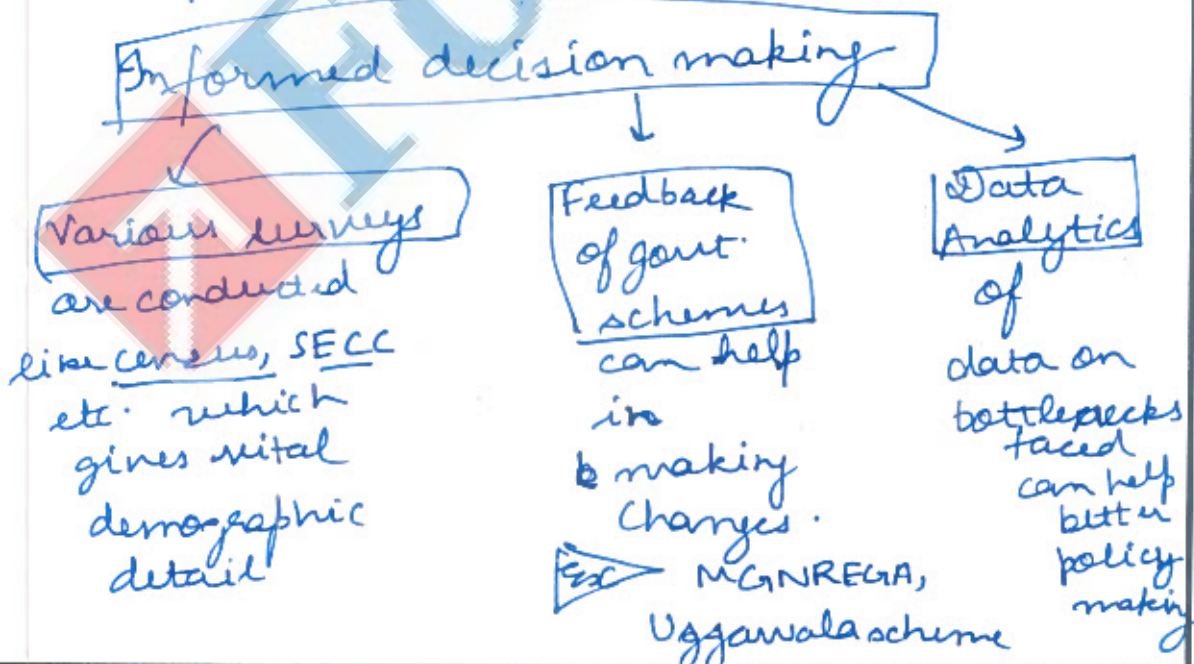 Informed decision making
Various surveys
are conducted
like census, SECC
etc. which
gives vital
demographic
detail
Feedback
of govt.
schemes
can help
in
making
changes.
Ex MGNREGA,
Uggawala scheme
Data
Analytics
of
data on
bottlenecks
faced
can help
better
policy
making